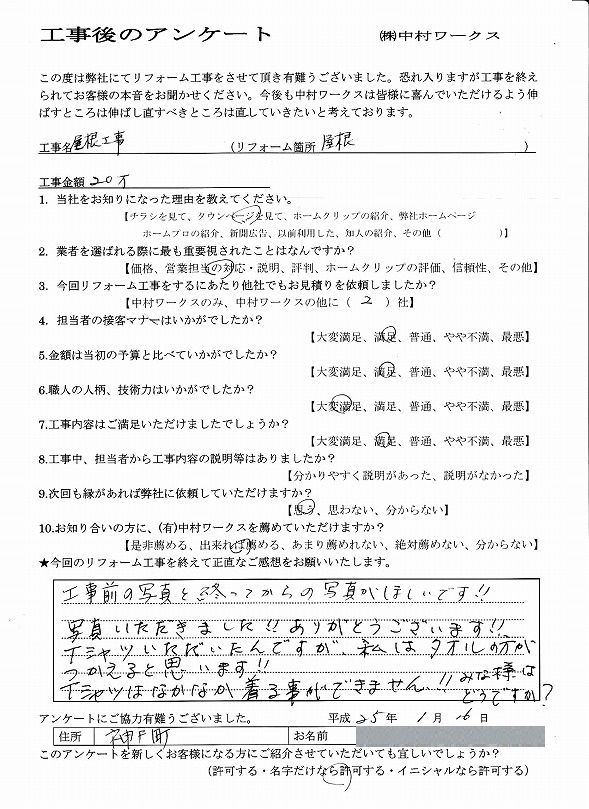 工事後のアンケート ㈱中村ワークス
この度は弊社にてリフォーム工事をさせて頂き有難うございました。恐れ入りますが工事を終え
られてお客様の本音をお聞かせください。今後も中村ワークスは皆様に喜んでいただけるよう伸
ばすところは伸ばし直すべきところは直していきたいと考えております。
工事名 屋根工事 (リフォーム箇所 屋根 )
工事金額 20万
1. 当社をお知りになった理由を教えてください。
【チラシを見て、タウンページを見て、ホームクリップの紹介、弊社ホームページ
ホームプロの紹介、新聞広告、以前利用した、知人の紹介、その他（ ）】
2. 業者を選ばれる際に最も重要視されたことはなんですか？
【価格、営業担当の対応・説明、評判、ホームクリップの評価、信頼性、その他】
3. 今回リフォーム工事をするにあたり他社でもお見積りを依頼しましたか？
【中村ワークスのみ、中村ワークスの他に（ 2 ）社】
4. 担当者の接客マナーはいかがでしたか？
【大変満足、満足、普通、やや不満、最悪】
5.金額は当初の予算と比べていかがでしたか？
【大変満足、満足、普通、やや不満、最悪】
6.職人の人柄、技術力はいかがでしたか？
【大変満足、満足、普通、やや不満、最悪】
7.工事内容はご満足いただけましたでしょうか？
【大変満足、満足、普通、やや不満、最悪】
8.工事中、担当者から工事内容の説明等はありましたか？
【分かりやすく説明があった、説明がなかった】
9.次回も縁があれば弊社に依頼していただけますか？
【思う、思わない、分からない】
10.お知り合いの方に、(有)中村ワークスを薦めていただけますか？
【是非薦める、出来れば薦める、あまり薦めれない、絶対薦めない、分からない】
★今回のリフォーム工事を終えて正直なご感想をお願いいたします。
工事前の写真と終ってからの写真がほしいです!!
写真いただきました!!ありがとうございます!!
Tシャツいただいたんですが、私はタオルの方が
つかえると思います!!
Tシャツはなかなか着る事ができません!! みな様は
どうですか?
アンケートにご協力有難うございました。 平成 25 年 1 月 16 日
住所 神戸町 お名前
このアンケートを新しくお客様になる方にご紹介させていただいても宜しいでしょうか？
(許可する・名字だけなら許可する・イニシャルなら許可する)